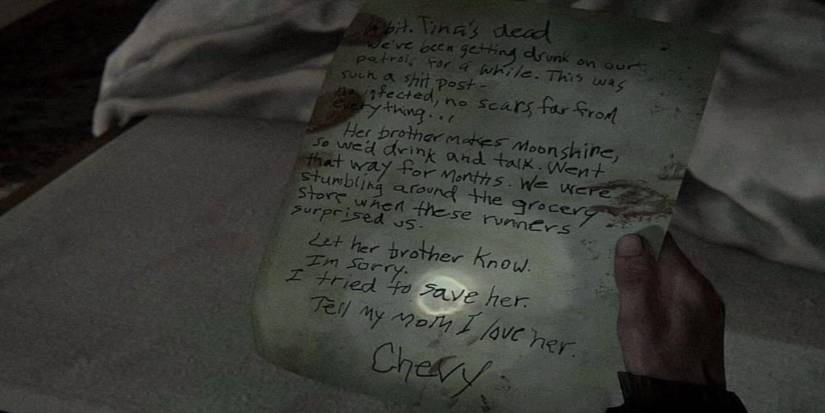 bit. Tina's dead
We've been getting drunk on our
patrols for a while. This was
such a shit post -
no infected, no scars, far from
everything...
Her brother makes Moonshine,
so we'd drink and talk. Went
that way for months. We were
stumbling around the grocery
store when these runners
surprised us.
Let her brother know.
I'm sorry.
I tried to save her.
Tell my mom I love her.
Chevy